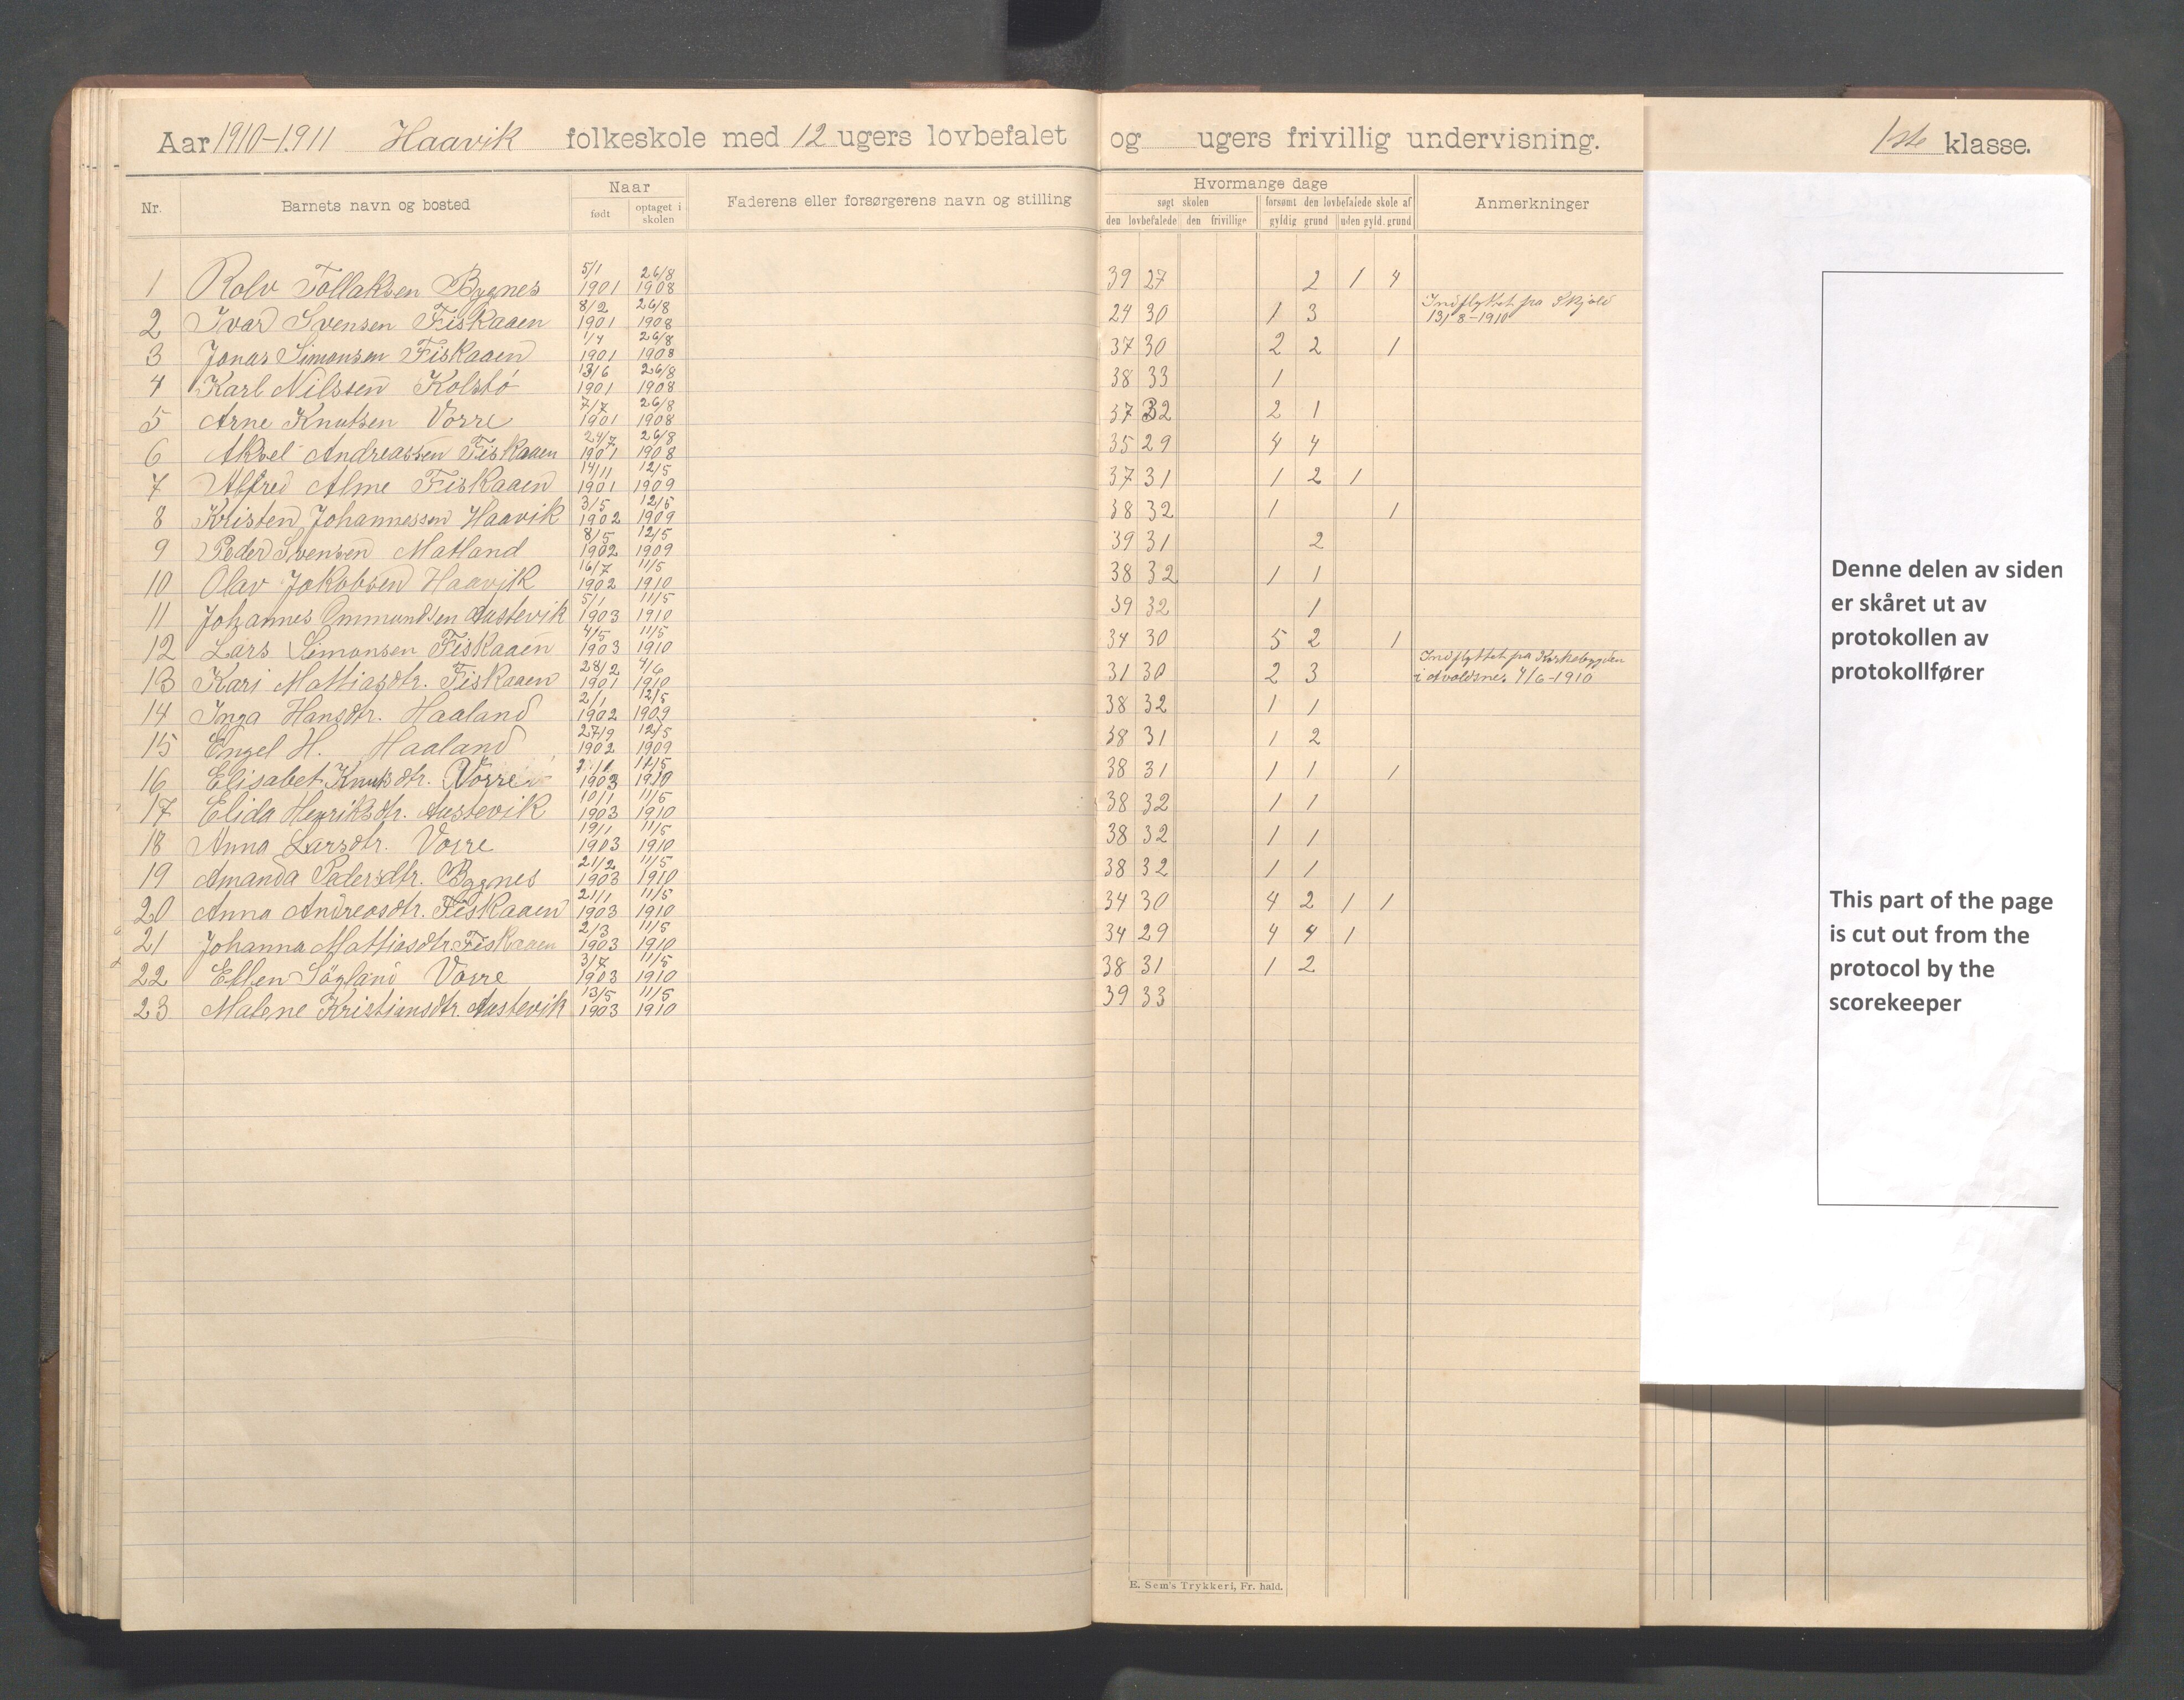 Aar 1910-1911 Haavik folkeskole med 12 ugers lovbefalet og ugers frivillig undervisning. 1ste klasse.
Nr. Barnets navn og bosted Naar født optaget i skolen Faderens eller forsørgerens navn og stilling Hvormange dage søgt skolen den lovbefalede den frivillige forsømt den lovbefalede skole af gyldig grund uden gyld. grund Anmerkninger
1 Rolv Tollaksen Bygnes 5/1 1901 26/8 1908 39 27 2 1 4
2 Ivar Svensen Fiskaaen 8/2 1901 26/8 1908 24 30 1 3 Indflyttet fra Skjold 13/8-1910
3 Jonas Simonsen Fiskaaen 1/4 1901 26/8 1908 37 30 2 2 1
4 Karl Nilssen Kolstö 13/6 1901 26/8 1908 38 33 1
5 Arne Knutsen Vorre 7/7 1901 26/8 1908 37 32 2 1
6 Aksel Andreassen Fiskaaen 24/7 1901 26/8 1908 35 29 4 4
7 Alfred Alme Fiskaaen 14/11 1901 12/5 1909 37 31 1 2 1
8 Kristen Johannessen Haavik 3/5 1902 12/5 1909 38 32 1 1
9 Peder Svensen Matland 8/5 1902 12/5 1909 39 31 2
10 Olav Jakobsen Haavik 16/7 1902 11/5 1910 38 32 1 1
11 Johannes Ommundsen Austevik 5/1 1903 11/5 1910 39 32 1
12 Lars Simonsen Fiskaaen 4/5 1903 11/5 1910 34 30 5 2 1
13 Kari Mattiasdtr. Fiskaaen 28/2 1901 4/6 1910 31 30 2 3 Indflyttet fra i Avaldsnes 4/6-1910
14 Inga Hansdtr. Haaland 2/1 1902 12/5 1909 38 32 1 1
15 Engel H. Haaland 27/9 1902 12/5 1909 38 31 1 2
16 Elisabet Knutsdtr. Vorre 1903 11/5 1910 38 31 1 1 1
17 Elida Henriksdtr. Austevik 10/1 1903 11/5 1910 38 32 1 1
18 Anna Larsdtr. Vorre 19/1 1903 11/5 1910 38 32 1 1
19 Amanda Pedersdtr. Bygnes 21/2 1903 11/5 1910 38 32 1 1
20 Anna Andreasdtr. Fiskaaen 21/1 1903 11/5 1910 34 30 4 2 1 1
21 Johanna Mattiasdtr. Fiskaaen 2/3 1903 11/5 1910 34 29 4 4 1
22 Ellen Sögland Vorre 3/7 1903 11/5 1910 38 31 1 2
23 Malene Kristiansdtr. Austevik 13/5 1903 11/5 1910 39 33
E. Sem's Trykkeri, Fr. hald.
Denne delen av siden
er skåret ut av
protokollen av
protokollfører
This part of the page
is cut out from the
protocol by the
scorekeeper